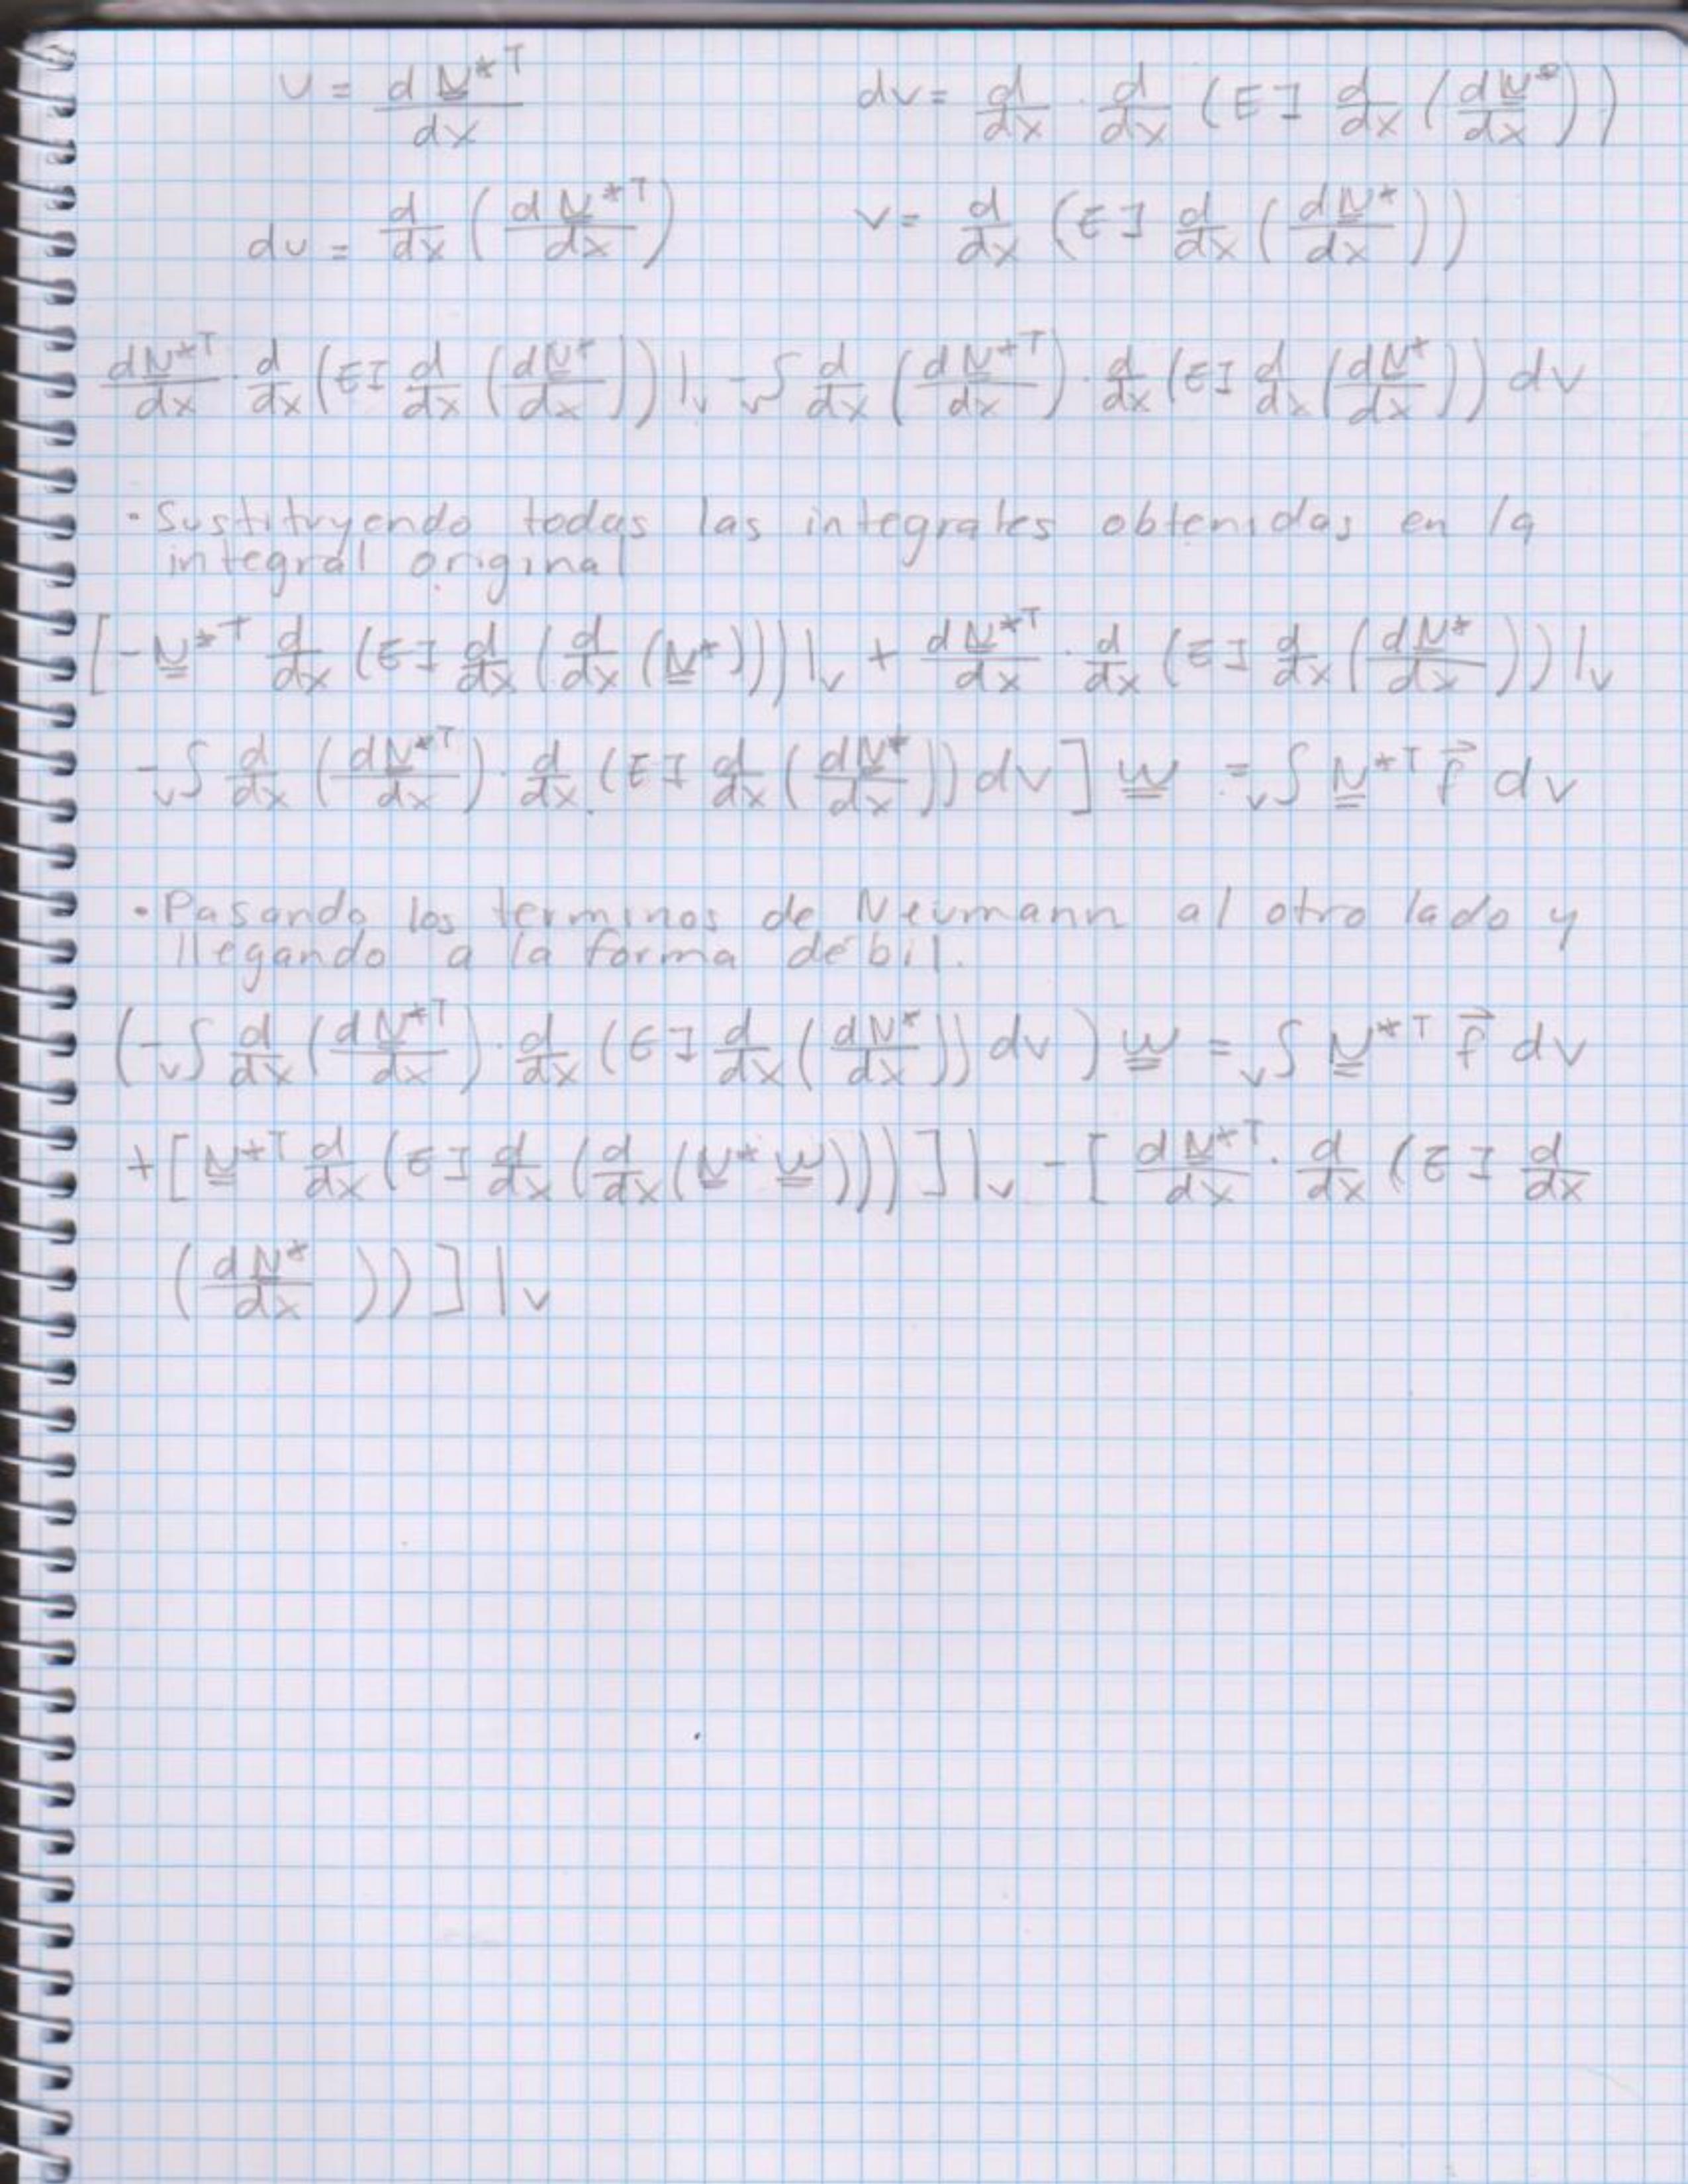 U = d N*T / dx    dv = d/dx · d/dx (EI d/dx (dN*/dx))
du = d/dx (dN*T/dx)    v = d/dx (EI d/dx (dN*/dx))
dN*T/dx · d/dx (EI d/dx (dN*/dx)) |v - v∫ d/dx (dN*T/dx) · d/dx (EI d/dx (dN*/dx)) dv
· Sustituyendo todas las integrales obtenidas en la
integral original
[-N*T d/dx (EI d/dx (d/dx (N*))) |v + dN*T/dx · d/dx (EI d/dx (dN*/dx)) |v
- v∫ d/dx (dN*T/dx) · d/dx (EI d/dx (dN*/dx)) dv ] W = v∫ N*T f⃗ dv
· Pasando los terminos de Neumann al otro lado y
llegando a la forma débil.
(- v∫ d/dx (dN*T/dx) · d/dx (EI d/dx (dN*/dx)) dv ) W = v∫ N*T f⃗ dv
+ [N*T d/dx (EI d/dx (d/dx (N* W)))] |v - [ dN*T/dx · d/dx (EI d/dx
(dN*/dx )) ] |v